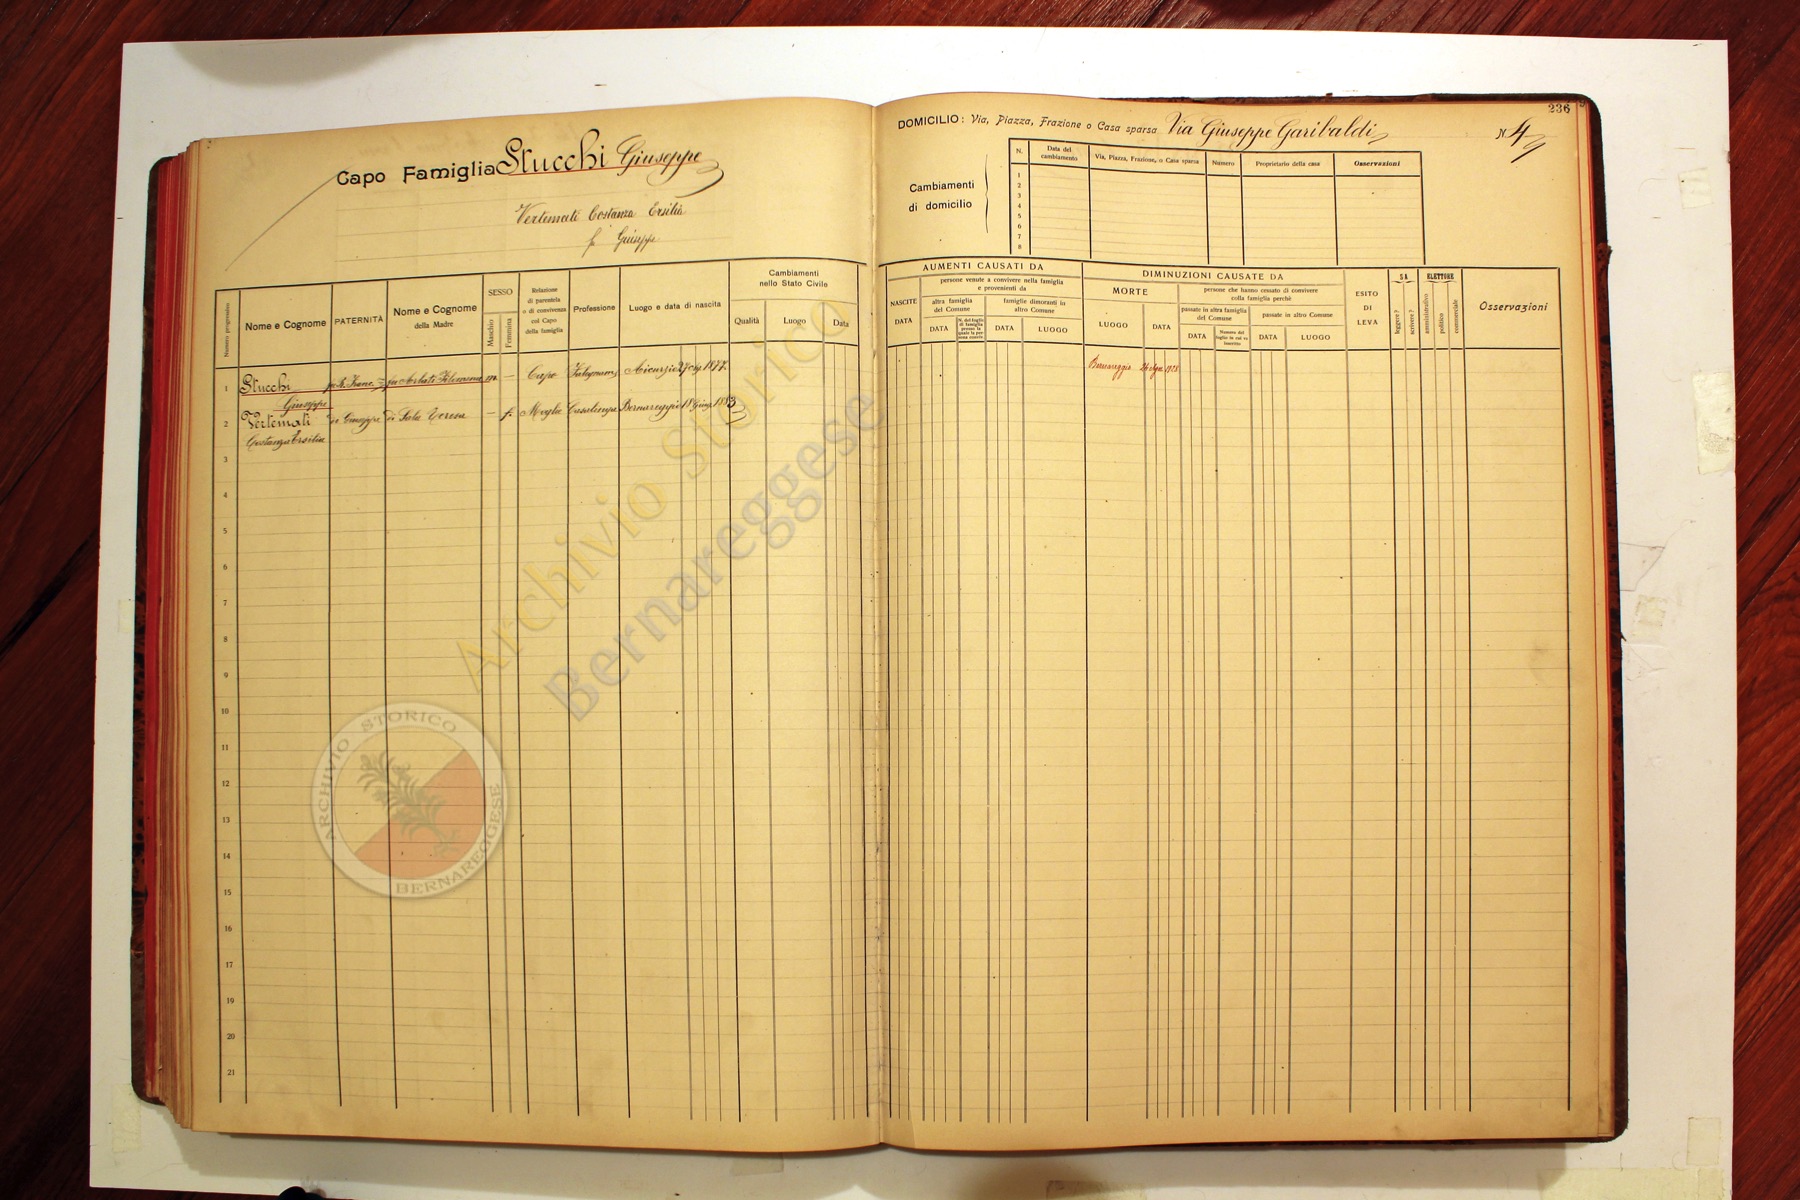 236
Capo Famiglia Stucchi Giuseppe
Vertemati Costanza Ersilia
f Giuseppe
DOMICILIO: Via, Piazza, Frazione o Casa sparsa Via Giuseppe Garibaldi N. 4
Cambiamenti di domicilio
N. Data del cambiamento Via, Piazza, Frazione, o Casa sparsa Numero Proprietario della casa Osservazioni
1
2
3
4
5
6
7
8
Numero progressivo
Nome e Cognome
PATERNITÀ
Nome e Cognome della Madre
SESSO
Maschio
Femmina
Relazione di parentela o di convivenza col Capo della famiglia
Professione
Luogo e data di nascita
Cambiamenti nello Stato Civile
Qualità
Luogo
Data
AUMENTI CAUSATI DA
NASCITE
DATA
persone venute a convivere nella famiglia e provenienti da
altra famiglia del Comune
DATA
N. del foglio di famiglia presso la quale la persona
famiglie dimoranti in altro Comune
DATA
LUOGO
DIMINUZIONI CAUSATE DA
MORTE
LUOGO
DATA
persone che hanno cessato di convivere colla famiglia perchè
passate in altra famiglia del Comune
DATA
Numero del foglio in cui va inscritto
passate in altro Comune
DATA
LUOGO
ESITO DI LEVA
SA
leggere?
scrivere?
ELETTORE
amministrativo
politico
commerciale
Osservazioni
1 Stucchi Giuseppe Capo Falegname Aicurzio 1877 Bernareggio 1928
2 Vertemati Costanza Ersilia di Giuseppe di Sala Teresa — f. Moglie Casalinga Bernareggio 18 1883
3
4
5
6
7
8
9
10
11
12
13
14
15
16
17
19
20
21
Archivio Storico
Bernareggese
ARCHIVIO STORICO
BERNAREGGESE